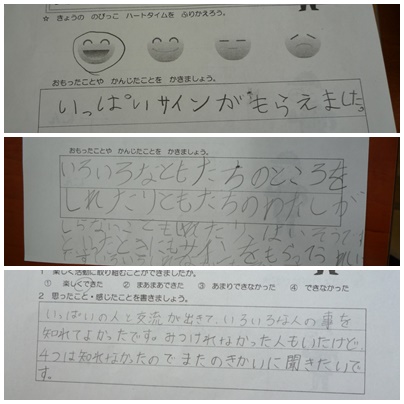 ☆ きょうの のびっこ ハートタイムを ふりかえろう。
おもったことや かんじたことを かきましょう。
いっぱいサインがもらえました。
おもったことや かんじたことを かきましょう。
いろいろなともだちのところを
しれたりともだちのわだしが
しらないことも
といったときにもサインをもらって
1 楽しく活動に取り組むことができましたか。
① 楽しくできた ② まあまあできた ③ あまりできなかった ④ できなかった
2 思ったこと・感じたことを書きましょう。
いっぱいの人と交流が出きて、いろいろな人の事を
知れてよかったです。みつけれなかった人もいたけど、
4つは知れなかったのでまたのきかいに聞きたいで
す。